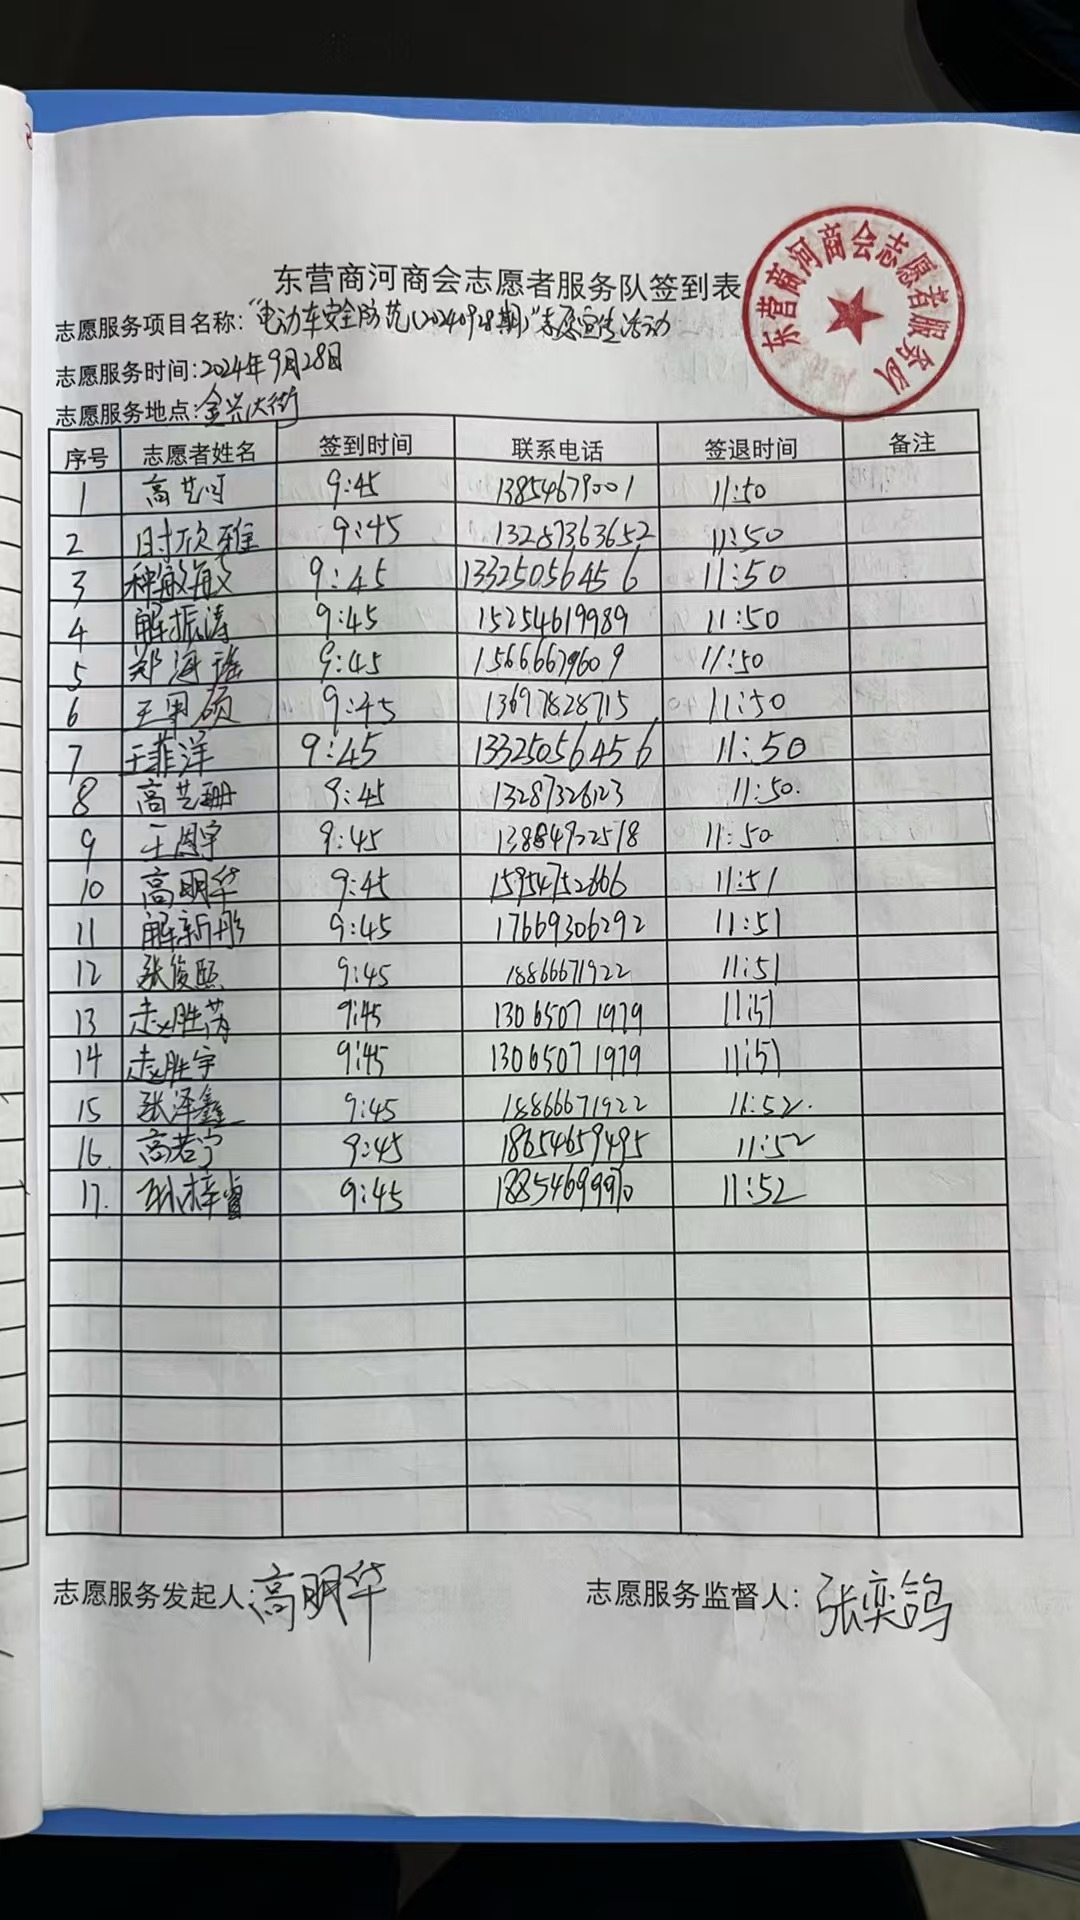 东营商河商会志愿者服务队签到表
东营商河商会志愿者服务队
志愿服务项目名称:“电动车安全防范(20240928期)”志愿宣传活动
志愿服务时间:2024年9月28日
志愿服务地点:金兴大街
序号 志愿者姓名 签到时间 联系电话 签退时间 备注
1 高艺 9:45 13854679001 11:50
2 时欣雅 9:45 13287363652 11:50
3 种敏敏 9:45 13325056456 11:50
4 解振涛 9:45 15254619989 11:50
5 郑海瑶 9:45 15666679609 11:50
6 王 硕 9:45 13697828715 11:50
7 王菲洋 9:45 13325056456 11:50
8 高艺珊 9:45 13287326123 11:50.
9 王 宇 9:45 13884922518 11:50
10 高明华 9:45 15954752666 11:51
11 解新彤 9:45 17669306292 11:51
12 张俊熙 9:45 18866671922 11:51
13 赵胜芮 9:45 13065071979 11:51
14 赵胜宇 9:45 13065071979 11:51
15 张泽鑫 9:45 18866671922 11:52.
16. 高若宁 9:45 18654659495 11:52
17. 孙梓睿 9:45 18854699970 11:52
志愿服务发起人:高明华 志愿服务监督人:张奕鸽